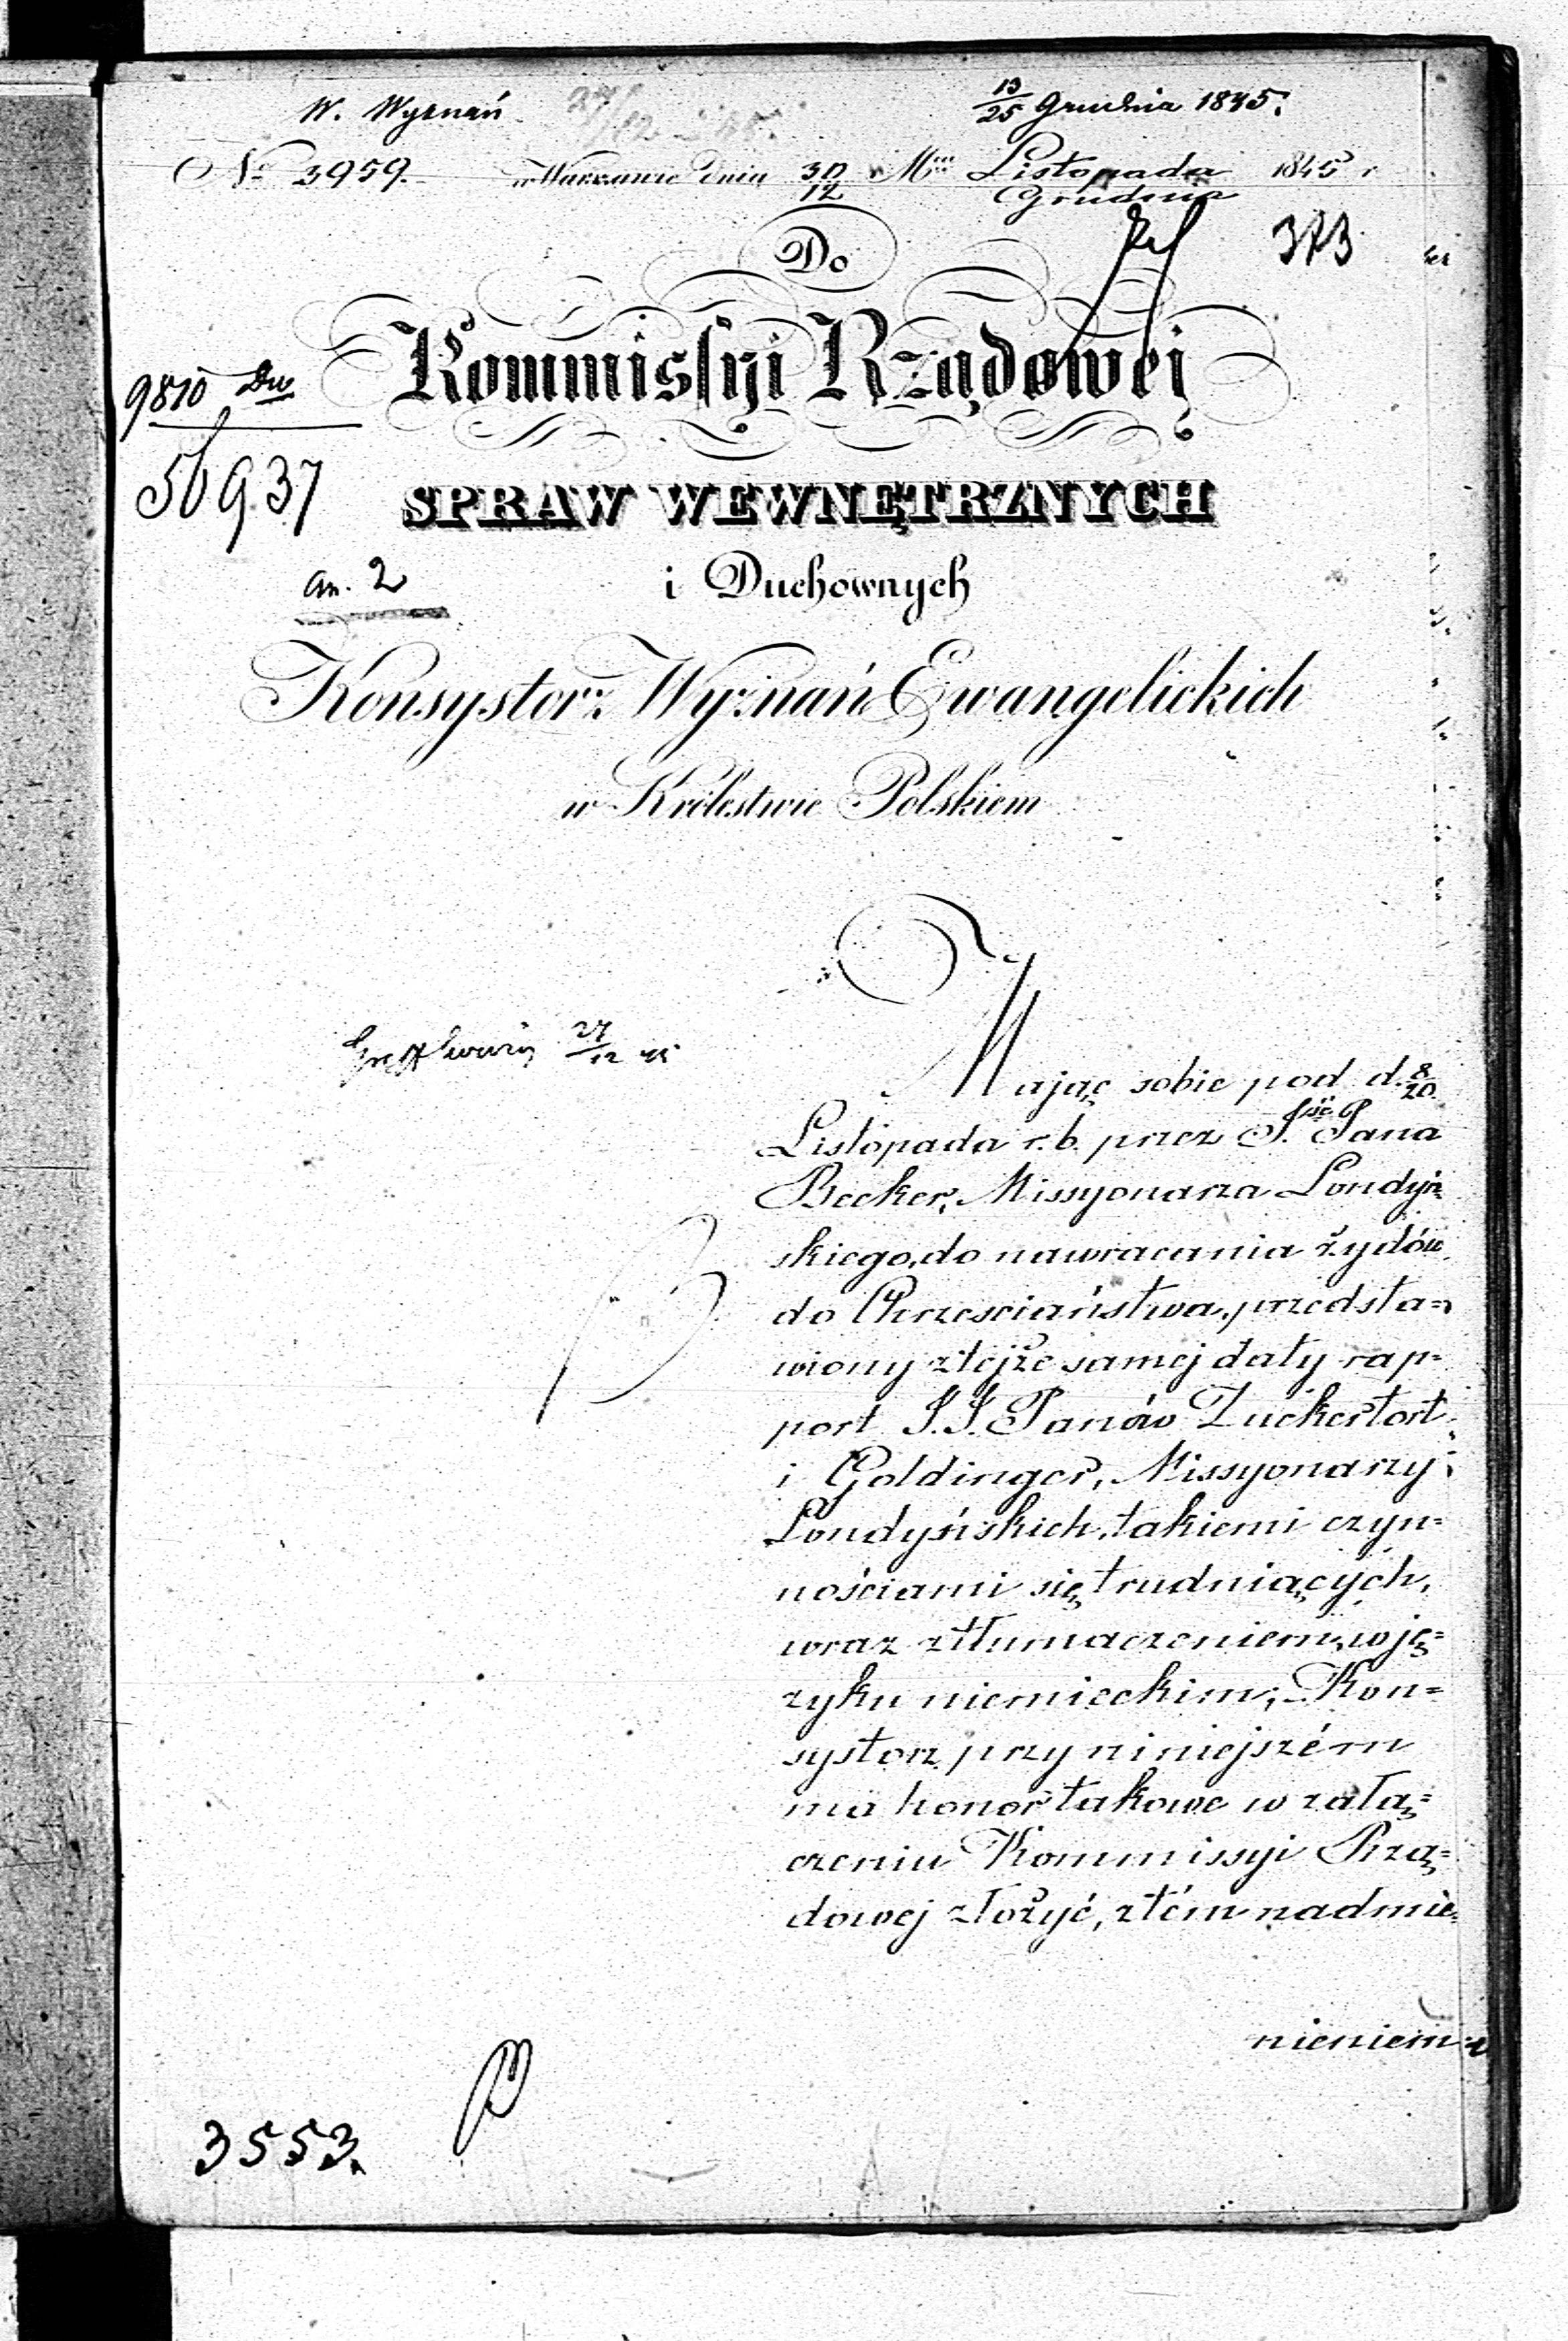 W. Wyznań
13/25 Grudnia 1845.
No 3959. w Warszawie dnia 30/12 Mca Listopada/Grudnia 1845 r
373
Do
Kommissyi Rządowej
9810
56937
SPRAW WEWNĘTRZNYCH
an. 2
i Duchownych
Konsystorz Wyznań Ewangelickich
w Królestwie Polskiem
27/12 45
Mając sobie pod d. 8/20
Listopada r.b. przez J. Pana
Becker, Missyonarza Londyń
skiego, do nawracania żydów
do Chrzesciaństwa, przedsta=
wiony z tejże samej daty rap=
port J.J. Panów Zuckertort
i Goldinger, Missyonarzy
Londyńskich, takiemi czyn=
nościami się trudniących,
wraz z tłumaczeniem, w ję=
zyku niemieckim; Kon=
systorz przy niniejszém
ma honor takowe w załą=
czeniu Kommissyi Rzą=
dowej złożyć, z tém nadmie=
nieniem
3553.